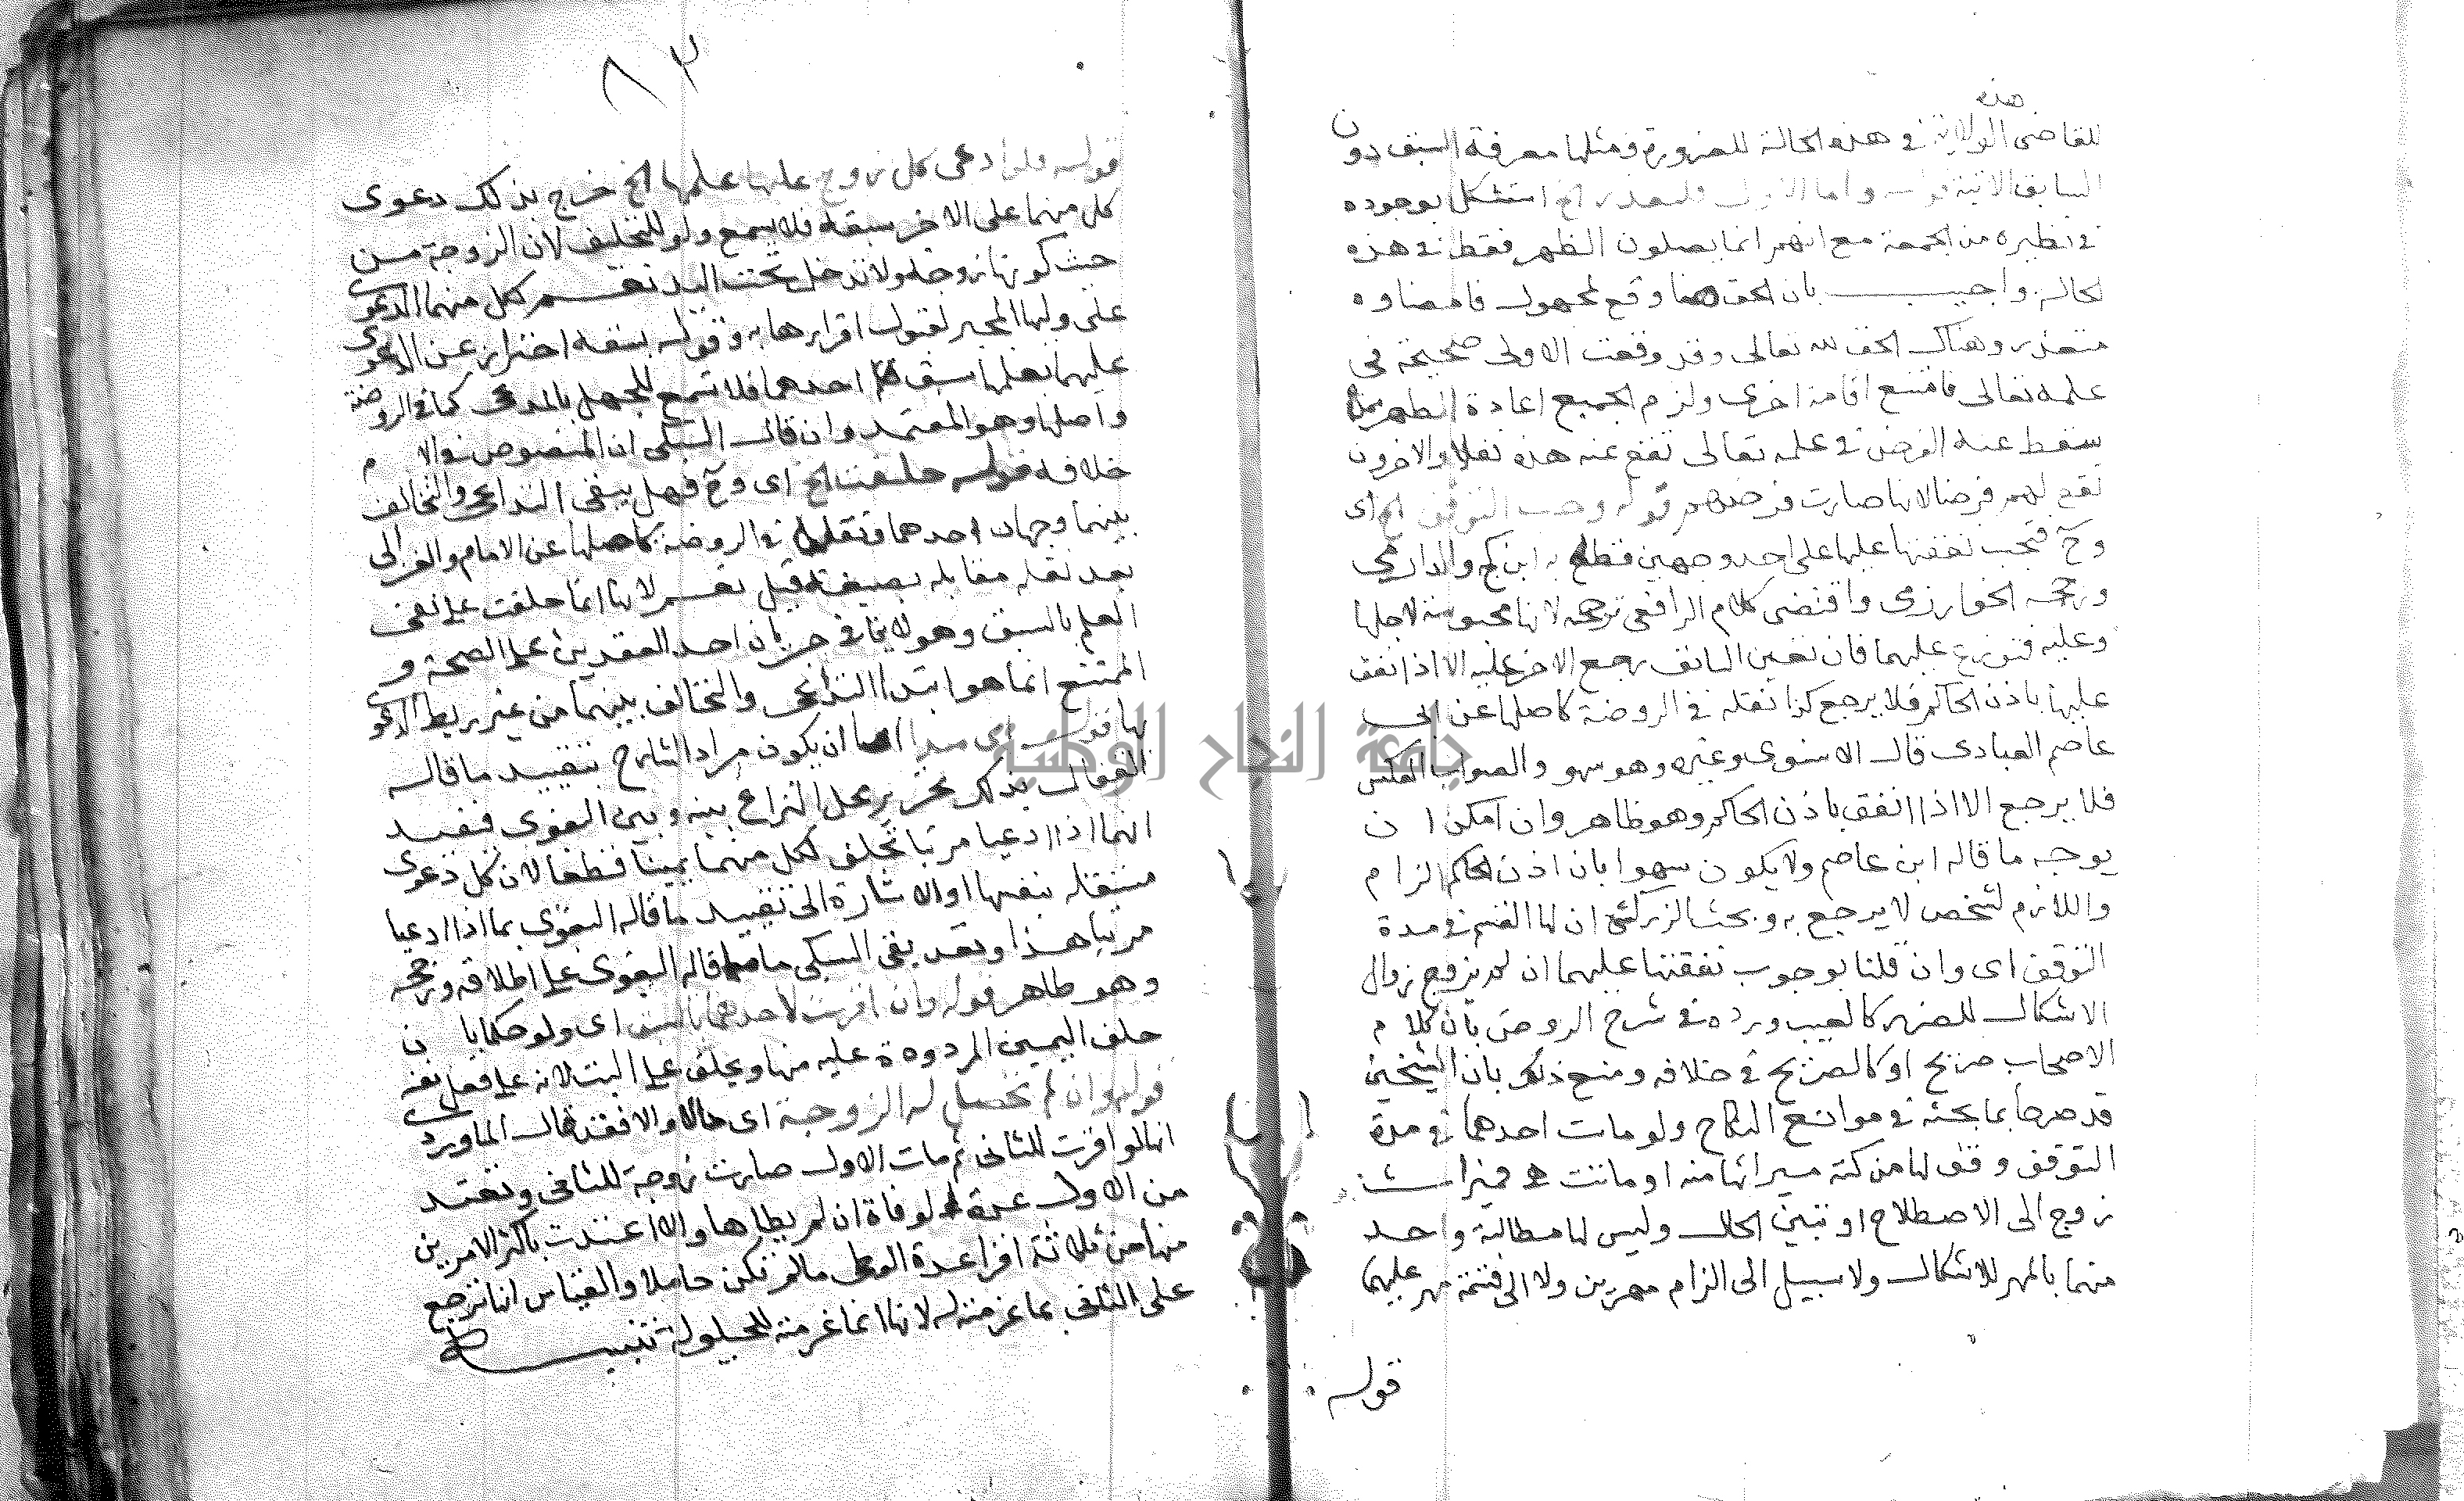 هذه
للقاضى الولاية فى هذه الحالة للضرورة ومثلها معرفة السبق دون
السابق الاتية قوله واما الاول فلتعذر الخ استشكل بوجوده
فى نظيره من الجمعة مع انهم انما يصلون الظهر فقط فى هذه
الحالة واجيب بان الحق هنا وقع لمجهول فامضاوه
متعذر وهناك الحق لله تعالى وقد وقعت الاولى صحيحة فى
علمه تعالى فامتنع اقامة اخرى ولزم الجميع اعادة الظهر
سقط عنه الفرض فى علمه تعالى تقع عنه هذه نفلا والاخرون
تقع لهم فرضا لانها صارت فرضهم قوله وجب التوقف الخ اى
وح فتجب نفقتها عليهما على احد وجهين قطع به ابن كج والدارمى
ورجحه الخوارزمى واقتضى كلام الرافعى ترجيحه لانها محبوسة لاجلها
وعليه فتوزع عليهما فان تعين السابق رجع الاخر عليه الا اذا انفق
عليها باذن الحاكم فلا يرجع كذا نقله فى الروضة كاصلها عن ابى
عاصم العبادى قال الاسنوى وغيره وهو سهو والصواب العكس
فلا يرجع الا اذا انفق باذن الحاكم وهو ظاهر وان امكن ان
يوجه ما قاله ابن عاصم ولا يكون سهوا بان اذن الحاكم الزام
واللازم لشخص لا يرجع به وبحث الزركشى ان لها الفسخ فى مدة
التوقف اى وان قلنا بوجوب نفقتها عليهما ان لم يزوج زوال
الاشكال للضرر كالعيب ورده فى شرح الروض بان كلام
الاصحاب صريح او كالصريح فى خلافه ومنع ذلك بان الشيخين
قد صرحا بما بحثه فى موانع النكاح ولو مات احدهما فى مدة
التوقف وقف لها من تركته ميراثها منه او ماتت فميراث
زوج الى الاصطلاح او تبين الحال وليس لها مطالبة واحد
منهما بالمهر للاشكال ولا سبيل الى الزام مهرين ولا الى قسمة مهر عليهما
قوله
٨٣
قوله فلو ادعى كل زوج عليها علمها الخ خرج بذلك دعوى
كل منهما على الاخر سبقه فلا يسمع ولو للتحليف لان الزوجة من
حيث كونها زوجة ولا تدخل تحت اليد نعم لكل منهما الدعوى
على وليها المجبر لقبول اقراره بها به وقوله بسبقه احتراز عن الدعوى
عليهما بعلمها سبق احدهما فلا تسمع للجهل بالمدعى كما فى الروضة
واصلها وهو المعتمد وان قال السبكى ان المنصوص فى الام
خلافه قوله حلفت الخ اى وح فهل يبقى التداعى والتحالف
بينهما وجهان احدهما ونقله فى الروضة كاصلها عن الامام والغزالى
بعد نقله مقابله بصيغة قيل نعم لانها انما حلفت على نفى
العلم بالسبق وهو لا ينافى جريان احد العقدين على الصحة و
الممتنع انما هو ابتداء التداعى والتحالف بينهما من غير ربط الدعوى
بها قوله ان يكون مراد الشارح بتقييد ما قاله
القفال بذلك تحرير محل النزاع بينه وبين البغوى فيفيد
انهما اذا ادعيا مرتبا تحلف لكل منهما يمينا قطعا لان كل دعوى
مستقلة بنفسها او الاشارة الى تقييد ما قاله البغوى بما اذا ادعيا
مرتبا هذا وقد يبقى السبكى ما قاله البغوى على اطلاقه ورجحه
وهو ظاهر قوله وان اقرت لاحدهما بالسبق اى ولو حكما بان
حلف اليمين المردودة عليه منها ويحلف على البت لانه على فعل نفسه
قوله وان لم تحصل له الزوجية اى حالا والا فقد قال الماوردى
انها لو اقرت للثانى ثم مات الاول صارت زوجة للثانى وتعتد
من الاول عدة الوفاة ان لم يطاها والا اعتدت باكثر الامرين
منها من ثلاثة اقرا عدة الوطى ما لم تكن حاملا والقياس انها ترجع
على الثانى بما غرمته له لانها انما غرمته للحيلولة تنبيه
جامعة النجاح الوطنية